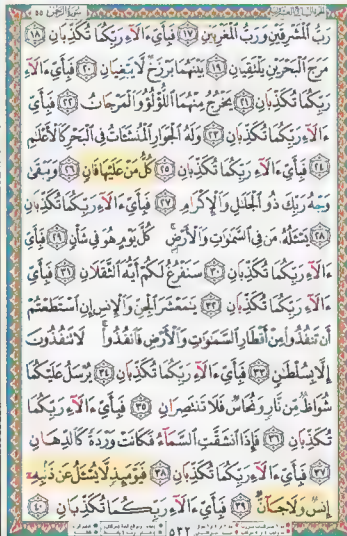 سورة الرحمن ٥٥
رَبُّ ٱلۡمَشۡرِقَيۡنِ وَرَبُّ ٱلۡمَغۡرِبَيۡنِ ١٧ فَبِأَيِّ ءَالَآءِ رَبِّكُمَا تُكَذِّبَانِ ١٨
مَرَجَ ٱلۡبَحۡرَيۡنِ يَلۡتَقِيَانِ ١٩ بَيۡنَهُمَا بَرۡزَخٞ لَّا يَبۡغِيَانِ ٢٠ فَبِأَيِّ ءَالَآءِ
رَبِّكُمَا تُكَذِّبَانِ ٢١ يَخۡرُجُ مِنۡهُمَا ٱللُّؤۡلُؤُ وَٱلۡمَرۡجَانُ ٢٢ فَبِأَيِّ
ءَالَآءِ رَبِّكُمَا تُكَذِّبَانِ ٢٣ وَلَهُ ٱلۡجَوَارِ ٱلۡمُنشَـَٔاتُ فِي ٱلۡبَحۡرِ كَٱلۡأَعۡلَٰمِ
٢٤ فَبِأَيِّ ءَالَآءِ رَبِّكُمَا تُكَذِّبَانِ ٢٥ كُلُّ مَنۡ عَلَيۡهَا فَانٖ ٢٦ وَيَبۡقَىٰ
وَجۡهُ رَبِّكَ ذُو ٱلۡجَلَٰلِ وَٱلۡإِكۡرَامِ ٢٧ فَبِأَيِّ ءَالَآءِ رَبِّكُمَا تُكَذِّبَانِ
٢٨ يَسۡـَٔلُهُۥ مَن فِي ٱلسَّمَٰوَٰتِ وَٱلۡأَرۡضِۚ كُلَّ يَوۡمٍ هُوَ فِي شَأۡنٖ ٢٩ فَبِأَيِّ
ءَالَآءِ رَبِّكُمَا تُكَذِّبَانِ ٣٠ سَنَفۡرُغُ لَكُمۡ أَيُّهَ ٱلثَّقَلَانِ ٣١ فَبِأَيِّ
ءَالَآءِ رَبِّكُمَا تُكَذِّبَانِ ٣٢ يَٰمَعۡشَرَ ٱلۡجِنِّ وَٱلۡإِنسِ إِنِ ٱسۡتَطَعۡتُمۡ
أَن تَنفُذُواْ مِنۡ أَقۡطَارِ ٱلسَّمَٰوَٰتِ وَٱلۡأَرۡضِ فَٱنفُذُواْۚ لَا تَنفُذُونَ
إِلَّا بِسُلۡطَٰنٖ ٣٣ فَبِأَيِّ ءَالَآءِ رَبِّكُمَا تُكَذِّبَانِ ٣٤ يُرۡسَلُ عَلَيۡكُمَا
شُوَاظٞ مِّن نَّارٖ وَنُحَاسٞ فَلَا تَنتَصِرَانِ ٣٥ فَبِأَيِّ ءَالَآءِ رَبِّكُمَا
تُكَذِّبَانِ ٣٦ فَإِذَا ٱنشَقَّتِ ٱلسَّمَآءُ فَكَانَتۡ وَرۡدَةٗ كَٱلدِّهَانِ
٣٧ فَبِأَيِّ ءَالَآءِ رَبِّكُمَا تُكَذِّبَانِ ٣٨ فَيَوۡمَئِذٖ لَّا يُسۡـَٔلُ عَن ذَنۢبِهِۦٓ
إِنسٞ وَلَا جَآنّٞ ٣٩ فَبِأَيِّ ءَالَآءِ رَبِّكُمَا تُكَذِّبَانِ ٤٠
٥٣٢